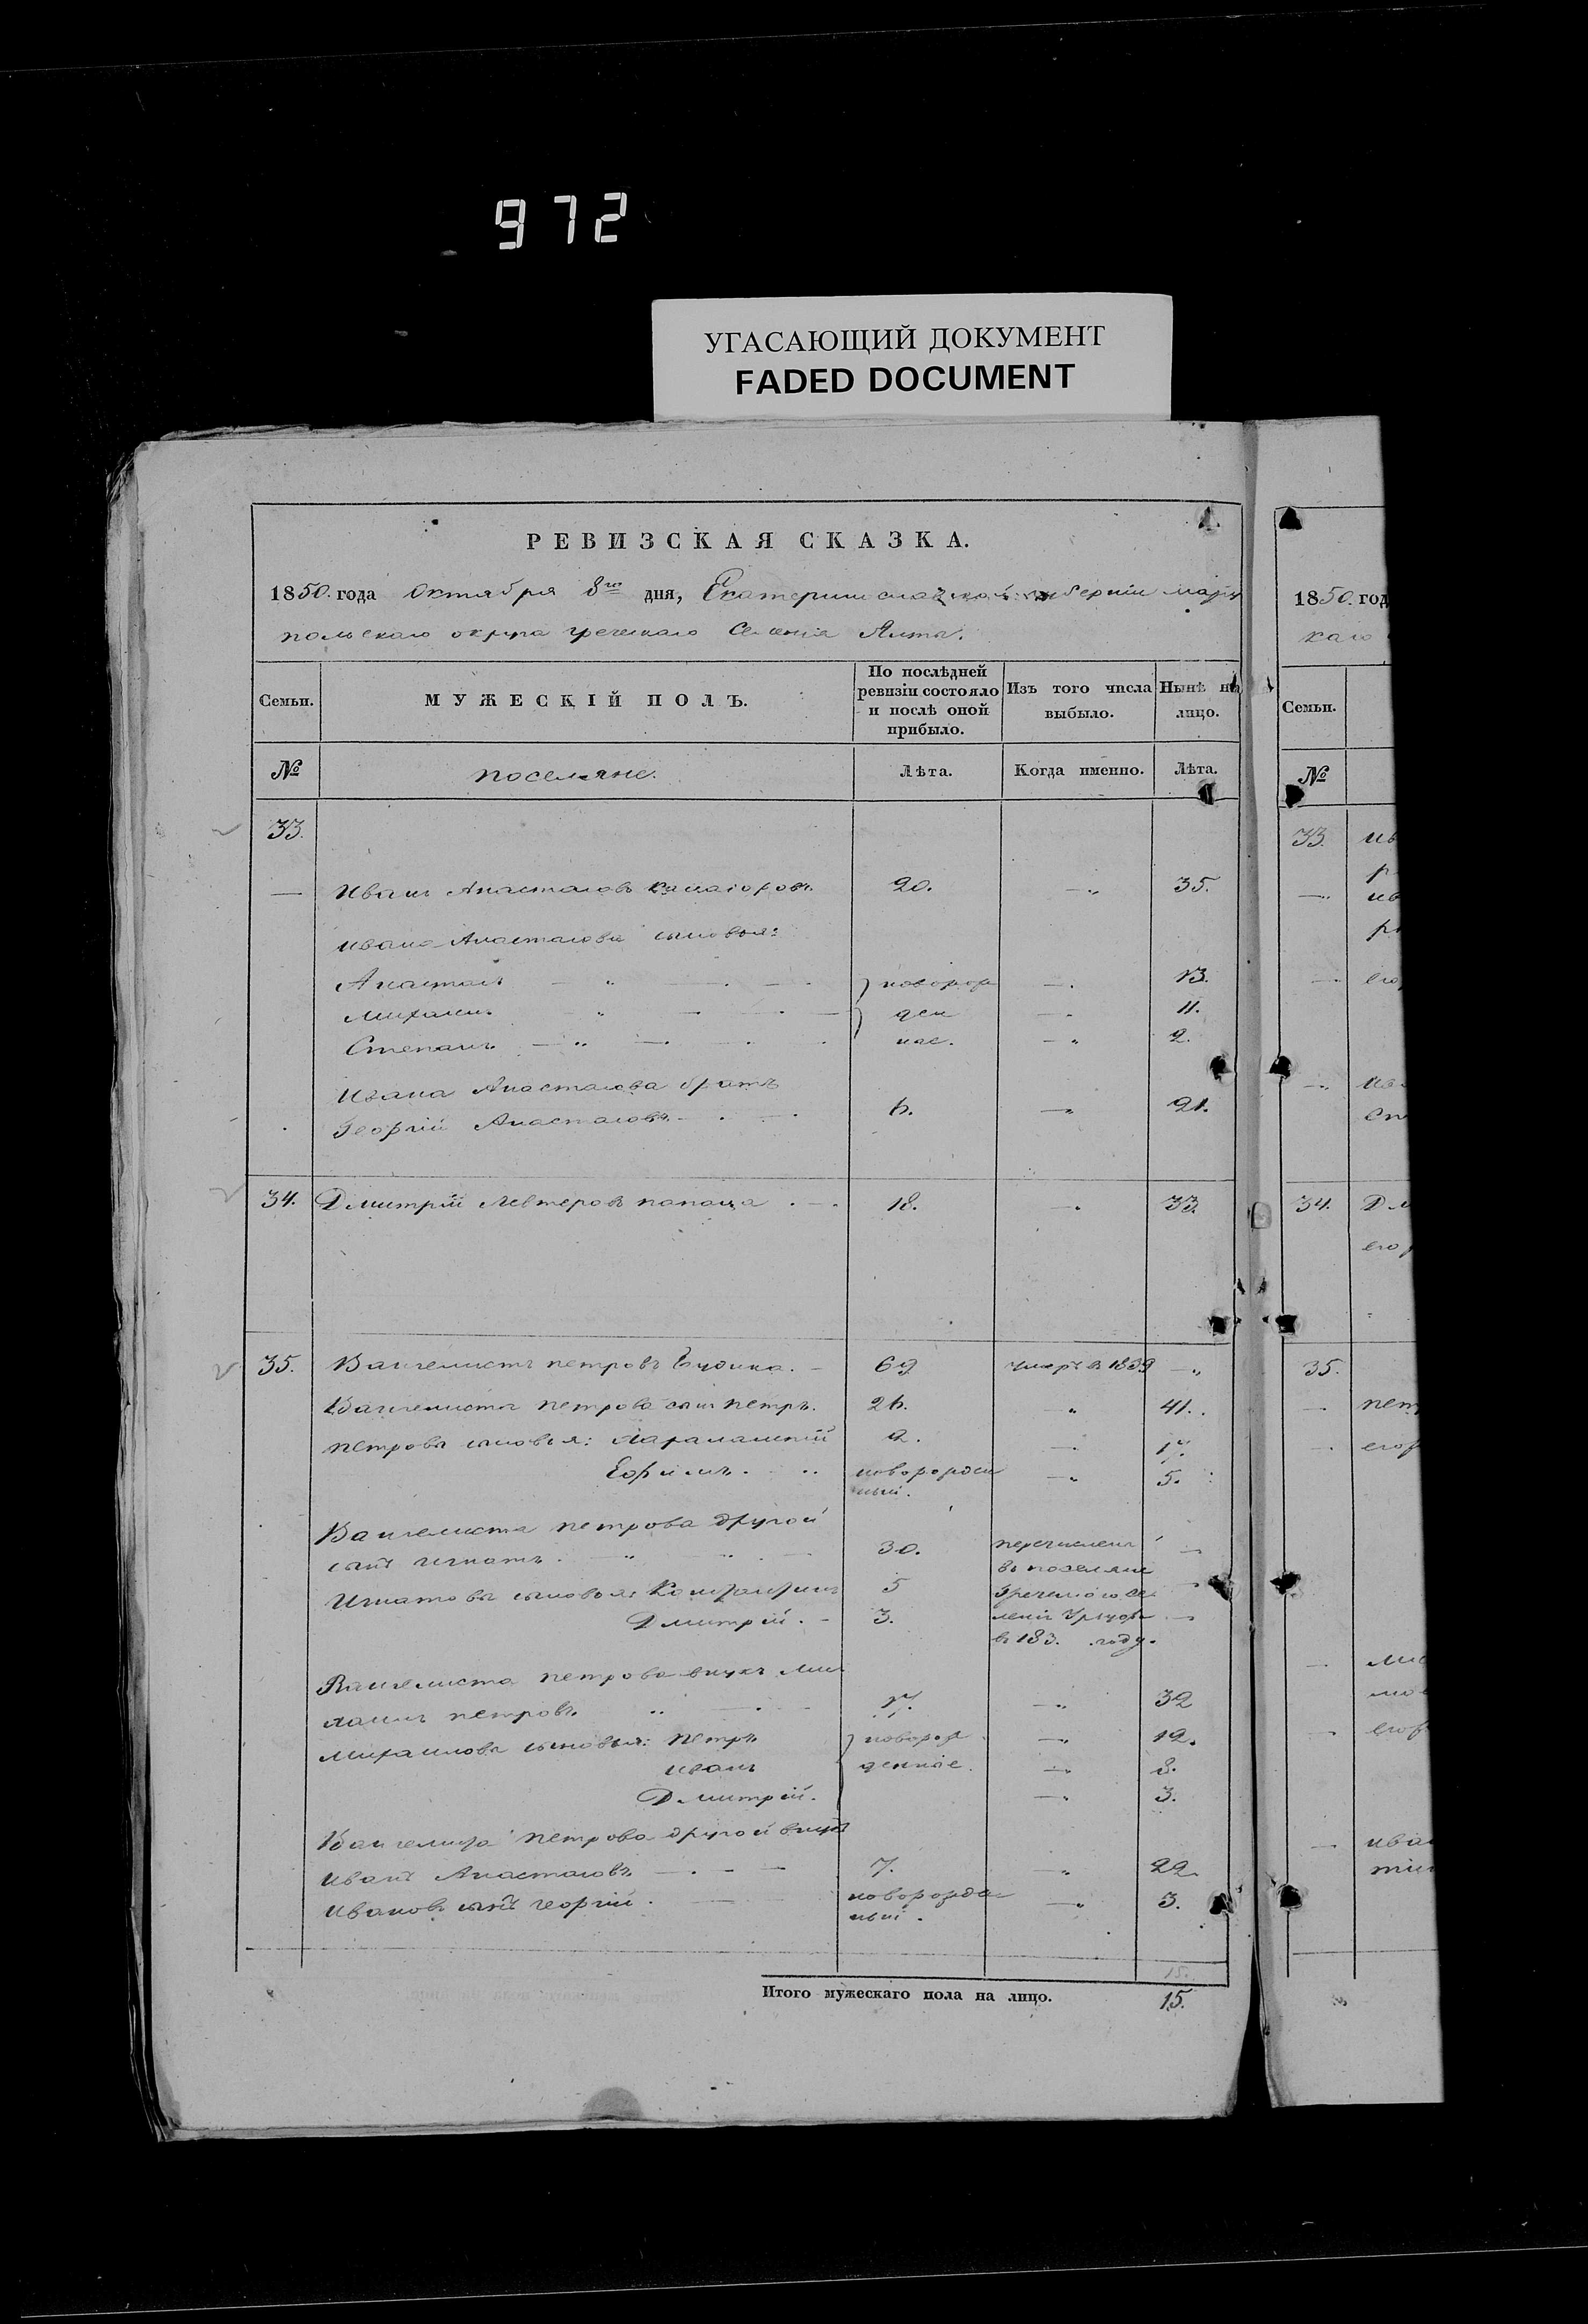 972
УГАСАЮЩИЙ ДОКУМЕНТ
FADED DOCUMENT
РЕВИЗСКАЯ СКАЗКА.
1850. года Октября 8го дня, Екатеринославской губерніи маріу
польскаго округа греческаго Селенія Ялты.
Семьи.
МУЖЕСКІЙ ПОЛЪ.
По послѣдней ревизіи состояло и послѣ оной прибыло.
Изъ того числа выбыло.
Нынѣ на лицо.
№
поселяне.
Лѣта.
Когда именно.
Лѣта.
33.
Иванъ Анастасовъ 20. — „ 35.
Ивана Анастасова сыновья:
Анастасъ — „ — новорож — 13.
Михаилъ — „ — ден — 11.
Степанъ — „ — ные. — „ 2.
Ивана Анастасова братъ
Георгій Анастасовъ — 6. — „ 21.
34. Дмитрій Левтеровъ папаца — 18. — „ 33.
35. Вангелистъ петровъ 69 умеръ в 1839 — „
Вангелиста петрова сынъ петръ. 26. „ 41.
петровы сыновья: Харалампій 2. — 17.
Ефимъ. новорожден — „ 5.
ный.
Вангелиста петрова другой
сынъ Игнатъ. — „ — 30. перечисленъ —
въ поселяне
Игнатовы сыновья: 5 греческаго се —
Дмитрій. — 3. ленія Урзуфъ —
въ 183. году.
Вангелиста петрова внукъ Ми
хаилъ петровъ. „ — 17. — „ 32
Михаиловы сыновья: петръ новорож — „ 12.
иванъ денные. — „ 8.
Дмитрій. — „ 3.
Вангелиста петрова другой внукъ
Иванъ Анастасовъ — 7. — „ 22.
Ивановъ сынъ георгій. — новорожден — „ 3.
ный.
15.
Итого мужескаго пола на лицо. 15.
1850. год
каго
Семьи.
№
33.
34.
его
35.
пет
его
ива